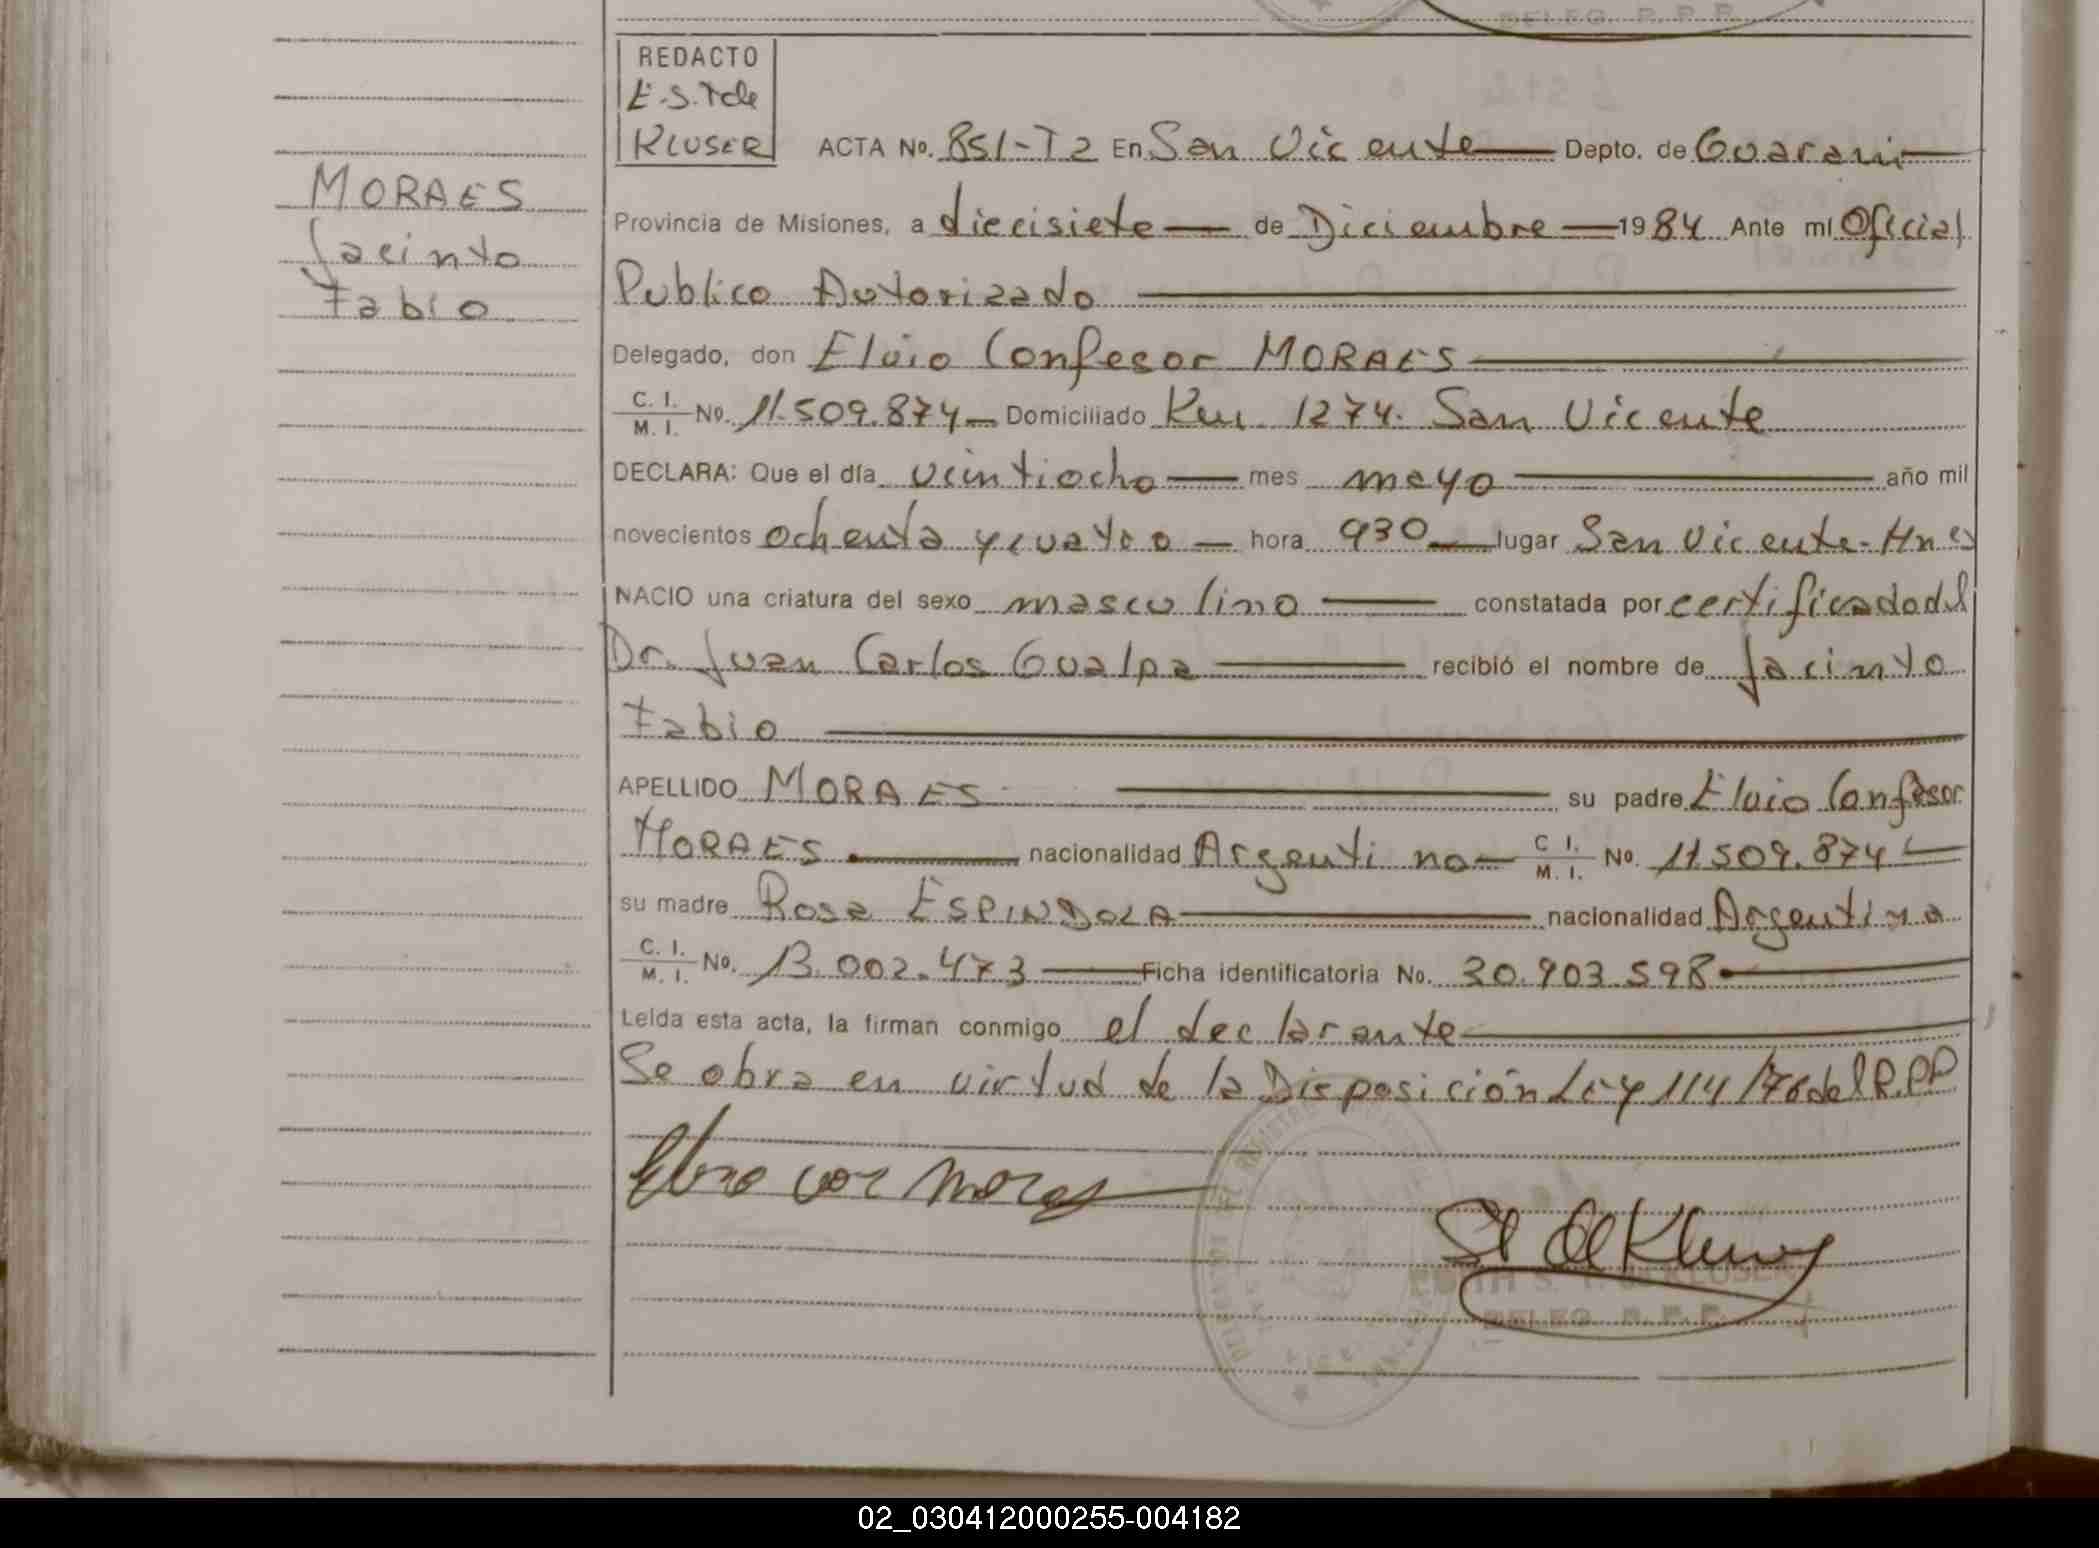 DELEG. R. P. P.
REDACTO
E.S.T de
KLUSER
ACTA No. 851-T2 En San Vicente Depto. de Guarani
MORAES
Jacinto
Fabio
Provincia de Misiones, a diecisiete de Diciembre 1984 Ante mí Oficial
Publico Autorizado
Delegado, don Elvio Confesor MORAES
C. I. M. I. No. 11.509.874 Domiciliado Km 1274. San Vicente
DECLARA: Que el día veintiocho mes mayo año mil
novecientos ochenta y cuatro hora 930 lugar San Vicente-Mnes
NACIO una criatura del sexo masculino constatada por certificado del
Dr. Juan Carlos Gualpa recibió el nombre de Jacinto
Fabio
APELLIDO MORAES su padre Elvio Confesor
MORAES nacionalidad Argentino C. I. M. I. No. 11.509.874
su madre Rosa ESPINDOLA nacionalidad Argentina
C. I. M. I. No. 13.002.473 Ficha identificatoria No. 30.903.598
Leída esta acta, la firman conmigo el declarante
Se obra en virtud de la Disposición Ley 114/76 del R.PP
EDITH S. T. de KLUSER
DELEG. R. P. P.
02_030412000255-004182